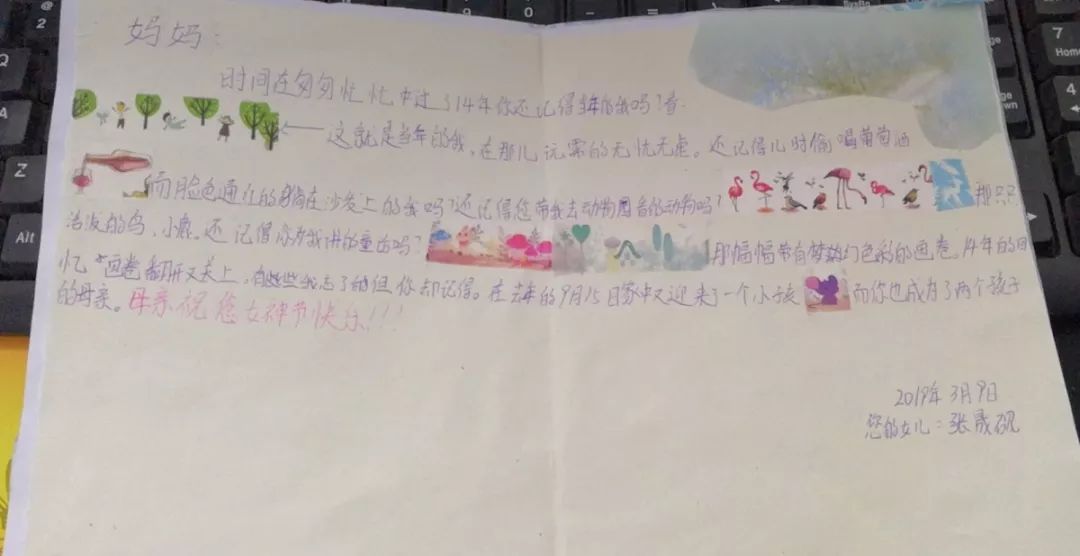 妈妈：
时间在匆匆忙忙中过了14年你还记得当年的我吗？看
这就是当年的我，在那儿玩耍的无忧无虑。还记得儿时偷喝葡萄酒
而脸色通红的躺在沙发上的我吗？还记得您带我去动物园看的动物吗？那只只
活泼的鸟、小鹿。还记得你为我讲的童话吗？那幅幅带有梦幻色彩的画卷。14年的回
忆画卷翻开又关上，有些我忘了的但你却记得。在去年的9月15日家中又迎来了一个小孩而你也成为了两个孩子
的母亲。母亲祝您女神节快乐！！！
2019年3月9日
您的女儿：张晟砚